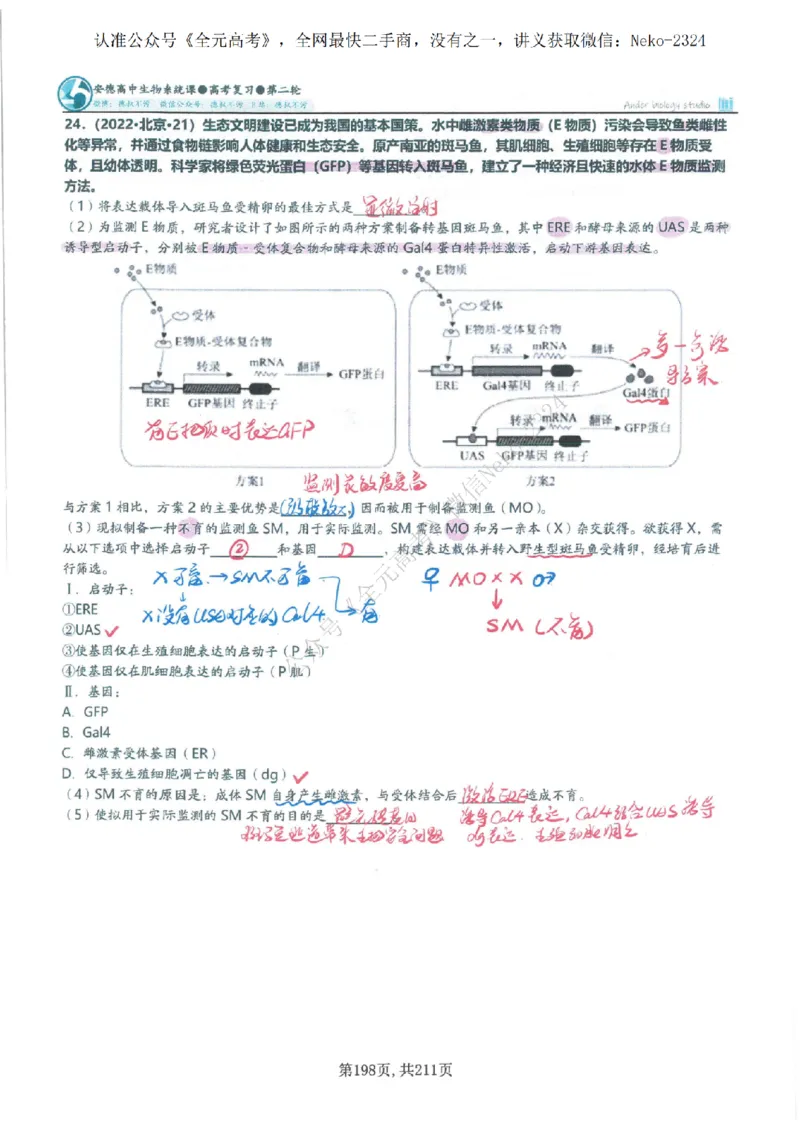 认准公众号《全元高考》，全网最快二手商，没有之一，讲义获取微信：Neko-2324
安德高中生物系统课●高考复习●第二轮
Andor biology studio
24.（2022·北京·21）生态文明建设已成为我国的基本国策。水中雌激素类物质（E 物质）污染会导致鱼类雌性
化等异常，并通过食物链影响人体健康和生态安全。原产南亚的斑马鱼，其肌细胞、生殖细胞等存在 E 物质受
体，且幼体透明。科学家将绿色荧光蛋白（GFP）等基因转入斑马鱼，建立了一种经济且快速的水体 E 物质监测
方法。
（1）将表达载体导入斑马鱼受精卵的最佳方式是 显微注射
（2）为监测 E 物质，研究者设计了如图所示的两种方案制备转基因斑马鱼，其中 ERE 和酵母来源的 UAS 是两种
诱导型启动子，分别被 E 物质－受体复合物和酵母来源的 Gal4 蛋白特异性激活，启动下游基因表达。
E物质
受体
E物质-受体复合物
转录 mRNA 翻译 GFP蛋白
ERE GFP基因 终止子
有E物质时表达GFP
方案1
E物质
受体
E物质-受体复合物
转录 mRNA 翻译
ERE Gal4基因 终止子 Gal4蛋白
多一个诱
导方案
转录 mRNA 翻译 GFP蛋白
UAS GFP基因 终止子
方案2
监测灵敏度更高
与方案 1 相比，方案 2 的主要优势是 因而被用于制备监测鱼（MO）。
（3）现拟制备一种不育的监测鱼 SM，用于实际监测。SM 需经 MO 和另一亲本（X）杂交获得。欲获得 X，需
从以下选项中选择启动子 ② 和基因 D ，构建表达载体并转入野生型斑马鱼受精卵，经培育后进
行筛选。
X可育→SM不可育
♀ MO × X ♂
Ⅰ．启动子：
①ERE
X没有 对应的Gal4 育
②UAS ✓
SM（不育）
③使基因仅在生殖细胞表达的启动子（P 生）
④使基因仅在肌细胞表达的启动子（P 肌）
Ⅱ．基因：
A. GFP
B. Gal4
C. 雌激素受体基因（ER）
D. 仅导致生殖细胞凋亡的基因（dg）✓
（4）SM 不育的原因是：成体 SM 自身产生雌激素，与受体结合后 激活ERE 造成不育。
诱导Gal4表达，Gal4结合UAS诱导
dg表达，生殖细胞凋亡
（5）使拟用于实际监测的 SM 不育的目的是 避免
带来生物安全问题
公众号《全元高考》微信Neko-2324
第198页,共211页